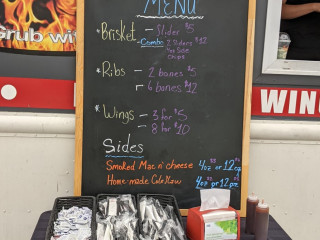 MENU
Grub wi
*Brisket - Slider $5
- Combo 2 Sliders $12
Chips
*Ribs - 2 bones $5
6 bones $12
* Wings - 3 for $5
- 8 for $10
WIN
Sides
Smoked Mac n' cheese 4oz or 12oz
Home-made ColeSlaw 4oz or 12oz